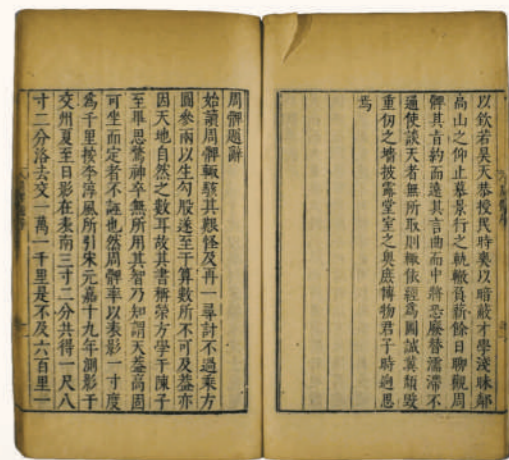 以欽若昊天恭授民時爽以暗蔽才學淺昧鄰
高山之仰止慕景行之軌轍負薪餘日聊觀周
髀其旨約而遠其言曲而中將恐廢替濡滯不
通使談天者無所取則輒依經為圖誠冀頹毀
重仞之墻披露堂室之奧庶博物君子時迥思
焉
周髀題辭
始讀周髀輒駭其艱怪及再一尋討不過乘方
圓參兩以生勾股遂至于算數所不可及蓋亦
因天地自然之數耳故其書稱榮方學于陳子
至畢思驚神卒無所用其智乃知謂天蓋高固
可坐而定者不誣也然周髀率以表影一寸度
為千里按李淳風所引宋元嘉十九年測影于
交州夏至日影在表南三寸二分共得一尺八
寸二分洛去交一萬一千里是不及六百里一